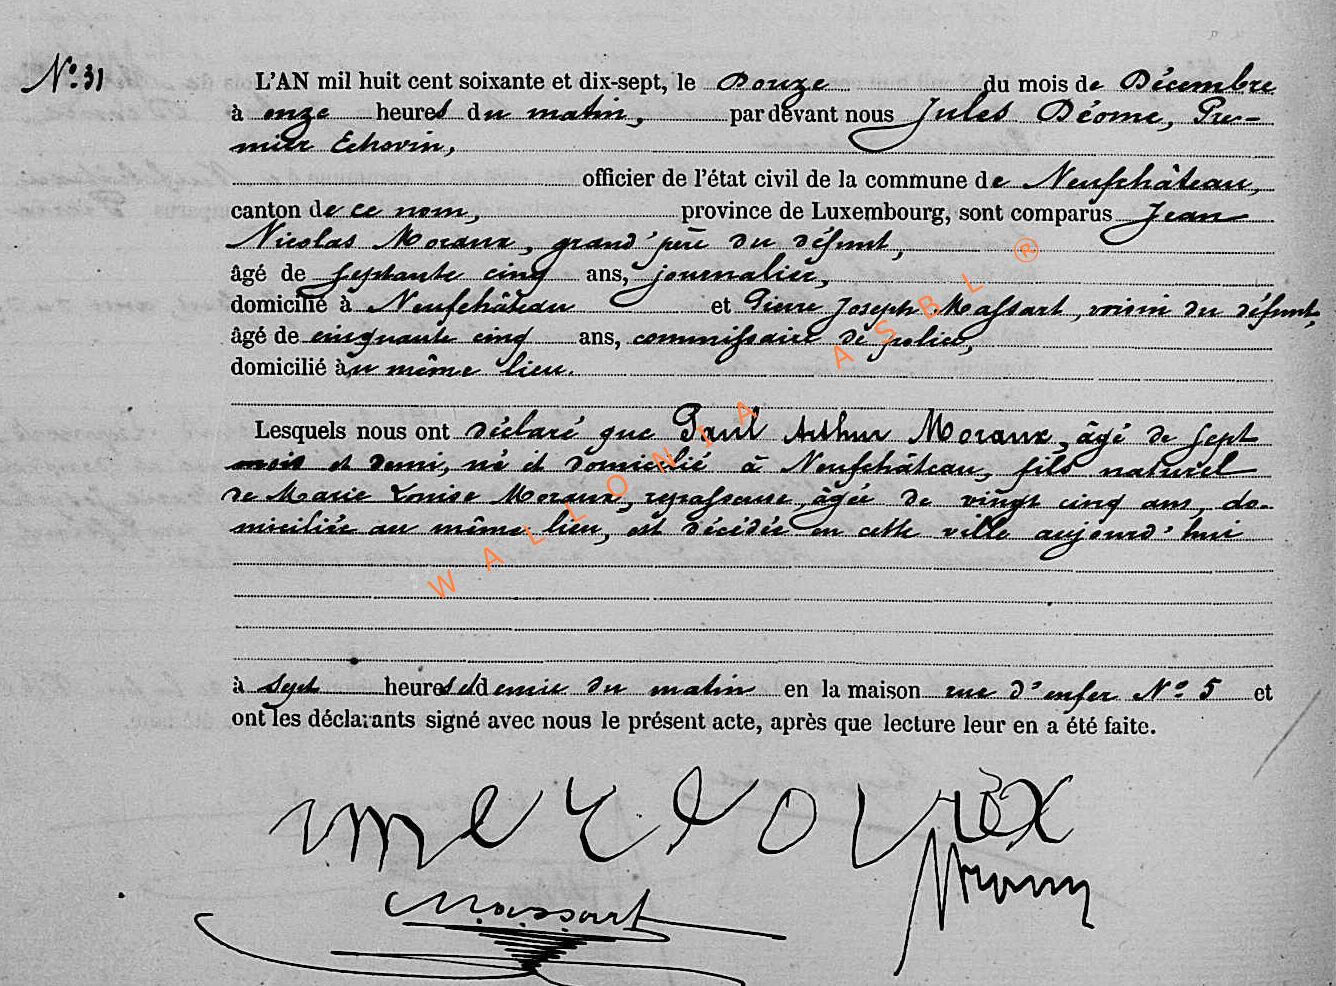 N° 31
L'AN mil huit cent soixante et dix-sept, le Douze du mois de Décembre
à onze heures du matin, par devant nous Jules Déome, Pre-
mier Echevin,
officier de l'état civil de la commune de Neufchâteau,
canton de ce nom, province de Luxembourg, sont comparus Jean
Nicolas Moraux, grand'père du défunt,
âgé de septante cinq ans, journalier,
domicilié à Neufchâteau et Pierre Joseph Massart, voisin du défunt,
âgé de cinquante cinq ans, commissaire de police,
domicilié au même lieu.
Lesquels nous ont déclaré que Paul Arthur Moraux, âgé de sept
mois et demi, né et domicilié à Neufchâteau, fils naturel
de Marie Louise Moraux, repasseuse, âgée de vingt cinq ans, do-
miciliée au même lieu, est décédée en cette ville aujourd'hui
à sept heures et demie du matin en la maison rue d'enfer N° 5 et
ont les déclarants signé avec nous le présent acte, après que lecture leur en a été faite.
Massart
WALLONIA ASBL ®